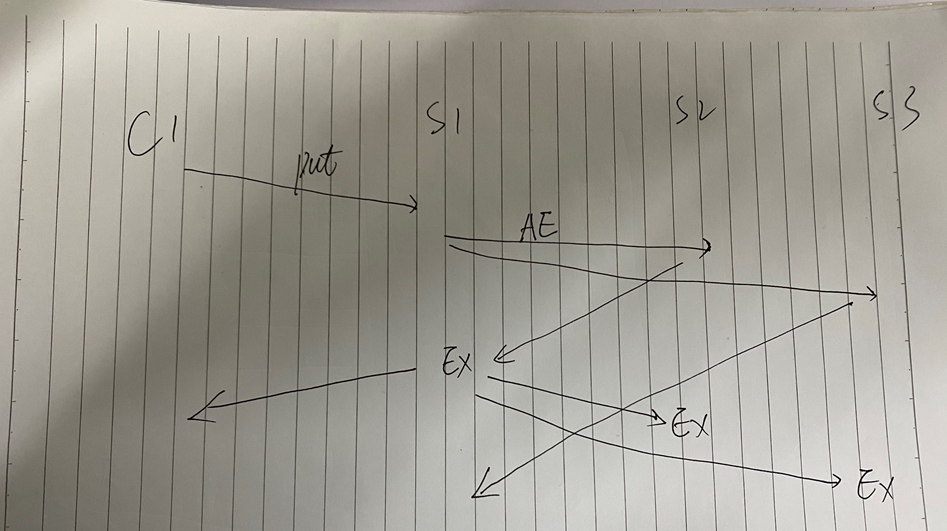 C1 S1 S2 S3
put
AE
Ex
Ex
Ex